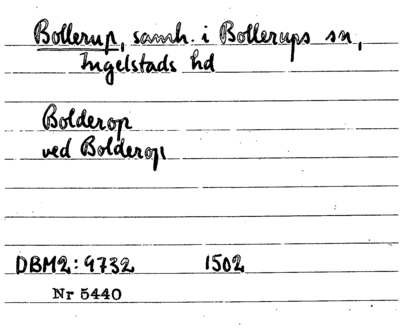 Bollerup, samh. i Bollerups sn,
Ingelstads hd
Bolderop
ved Bolderop
DBM2: 9732 1502
Nr 5440